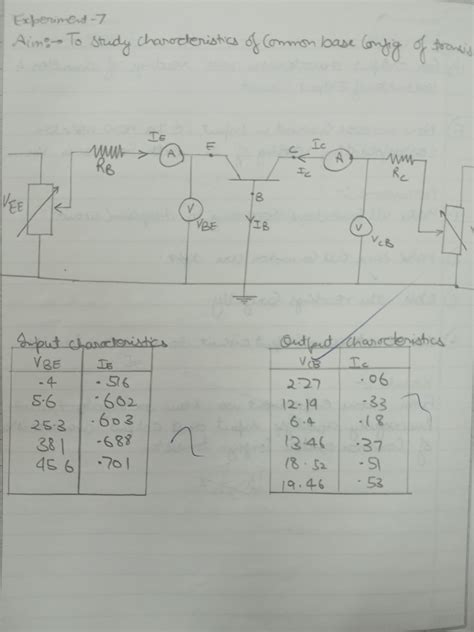 Experiment-7
Aim:→ To study characteristics of Common base Config of transis
IE
E
C
IC
A
A
RB
IC
RC
VEE
B
V
VBE
IB
V
VCB
Input characteristics
VBE IE
.4 .516
5.6 .602
25.3 .603
381 .688
456 .701
Output characteristics
VCB IC
2.27 .06
12.19 .33
6.4 .18
13.46 .37
18.52 .51
19.46 .53